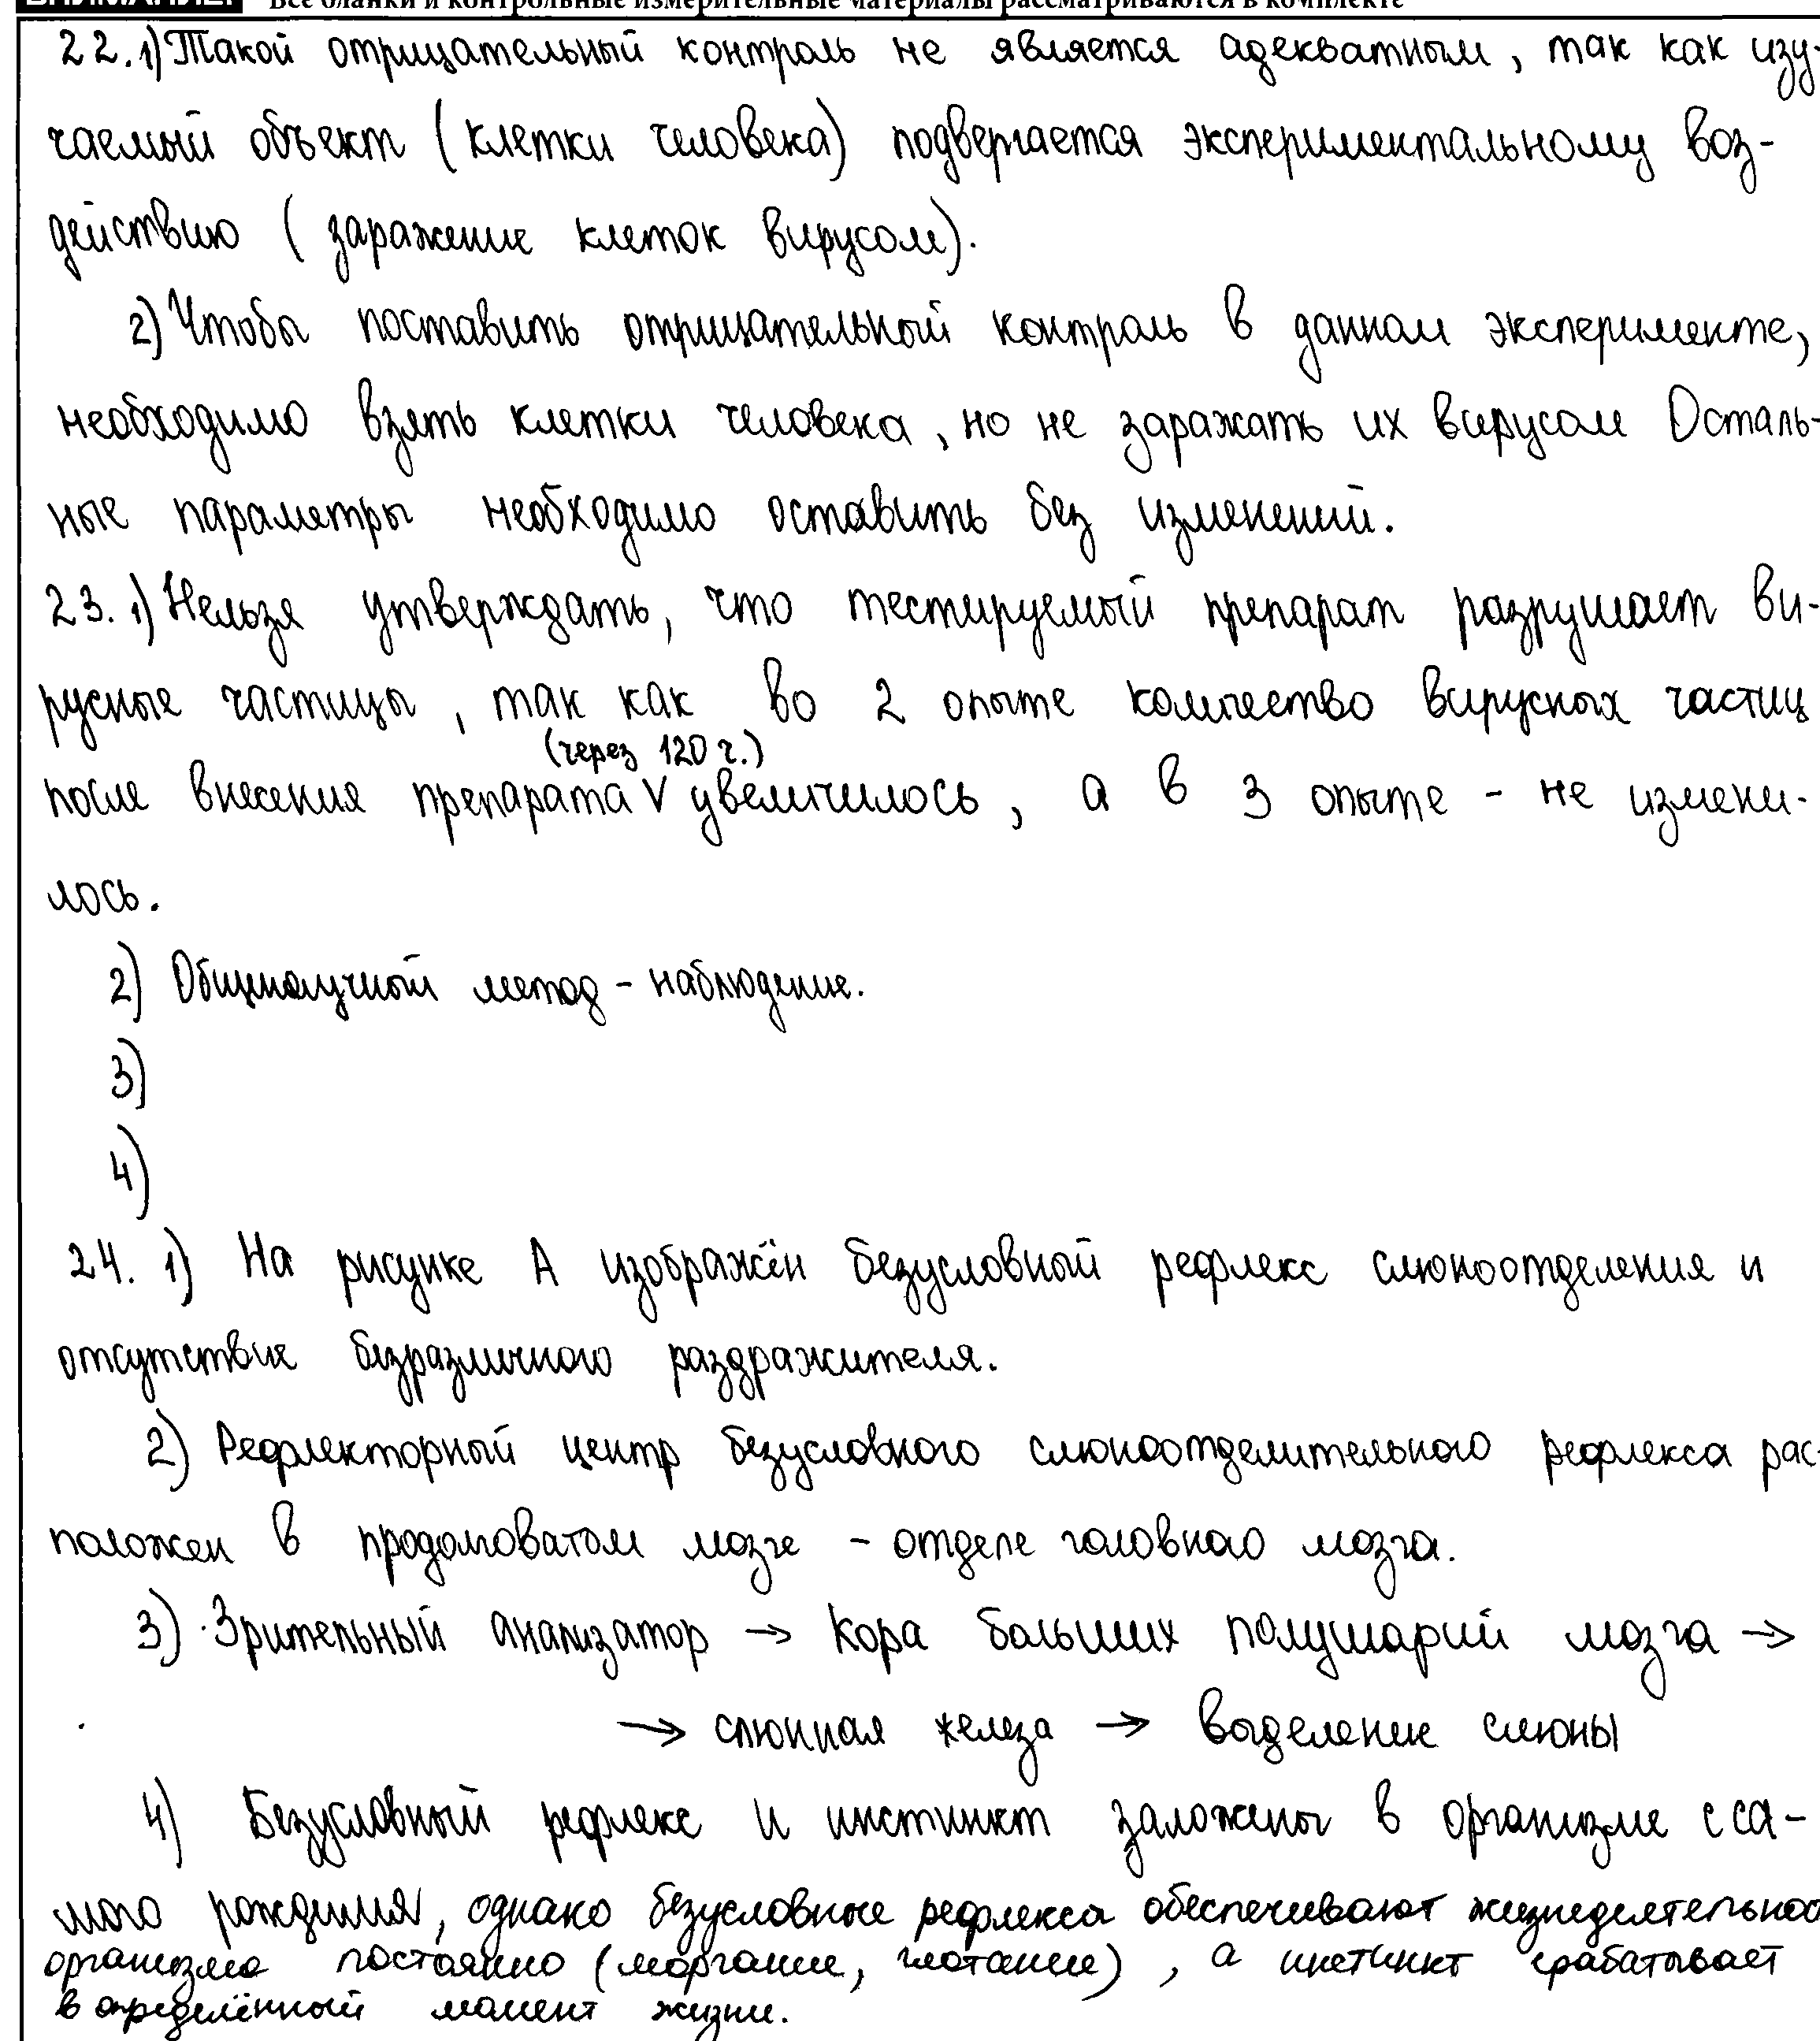 Все бланки и контрольные измерительные материалы рассматриваются в комплекте
22. 1) Такой отрицательный контроль не является адекватным, так как изу-
чаемый объект (клетки человека) подвергается экспериментальному воз-
действию (заражение клеток вирусом).
2) Чтобы поставить отрицательный контроль в данном эксперименте,
необходимо взять клетки человека, но не заражать их вирусом Осталь-
ные параметры необходимо оставить без изменений.
23. 1) Нельзя утверждать, что тестируемый препарат разрушает ви-
русные частицы, так как во 2 опыте количество вирусных частиц
(через 120 ч.)
после внесения препарата V увеличилось, а в 3 опыте - не измени-
лось.
2) Общенаучный метод - наблюдение.
3)
4)
24. 1) На рисунке А изображён безусловный рефлекс слюноотделения и
отсутствие безразличного раздражителя.
2) Рефлекторный центр безусловного слюноотделительного рефлекса рас-
положен в продолговатом мозге - отделе головного мозга.
3) Зрительный анализатор → кора больших полушарий мозга →
→ слюнная железа → выделение слюны
4) Безусловный рефлекс и инстинкт заложены в организме с са-
мого рождения, однако безусловные рефлекса обеспечивают жизнедеятельнос
организма постоянно (моргание, глотание), а инстинкт срабатывает
в определённый момент жизни.